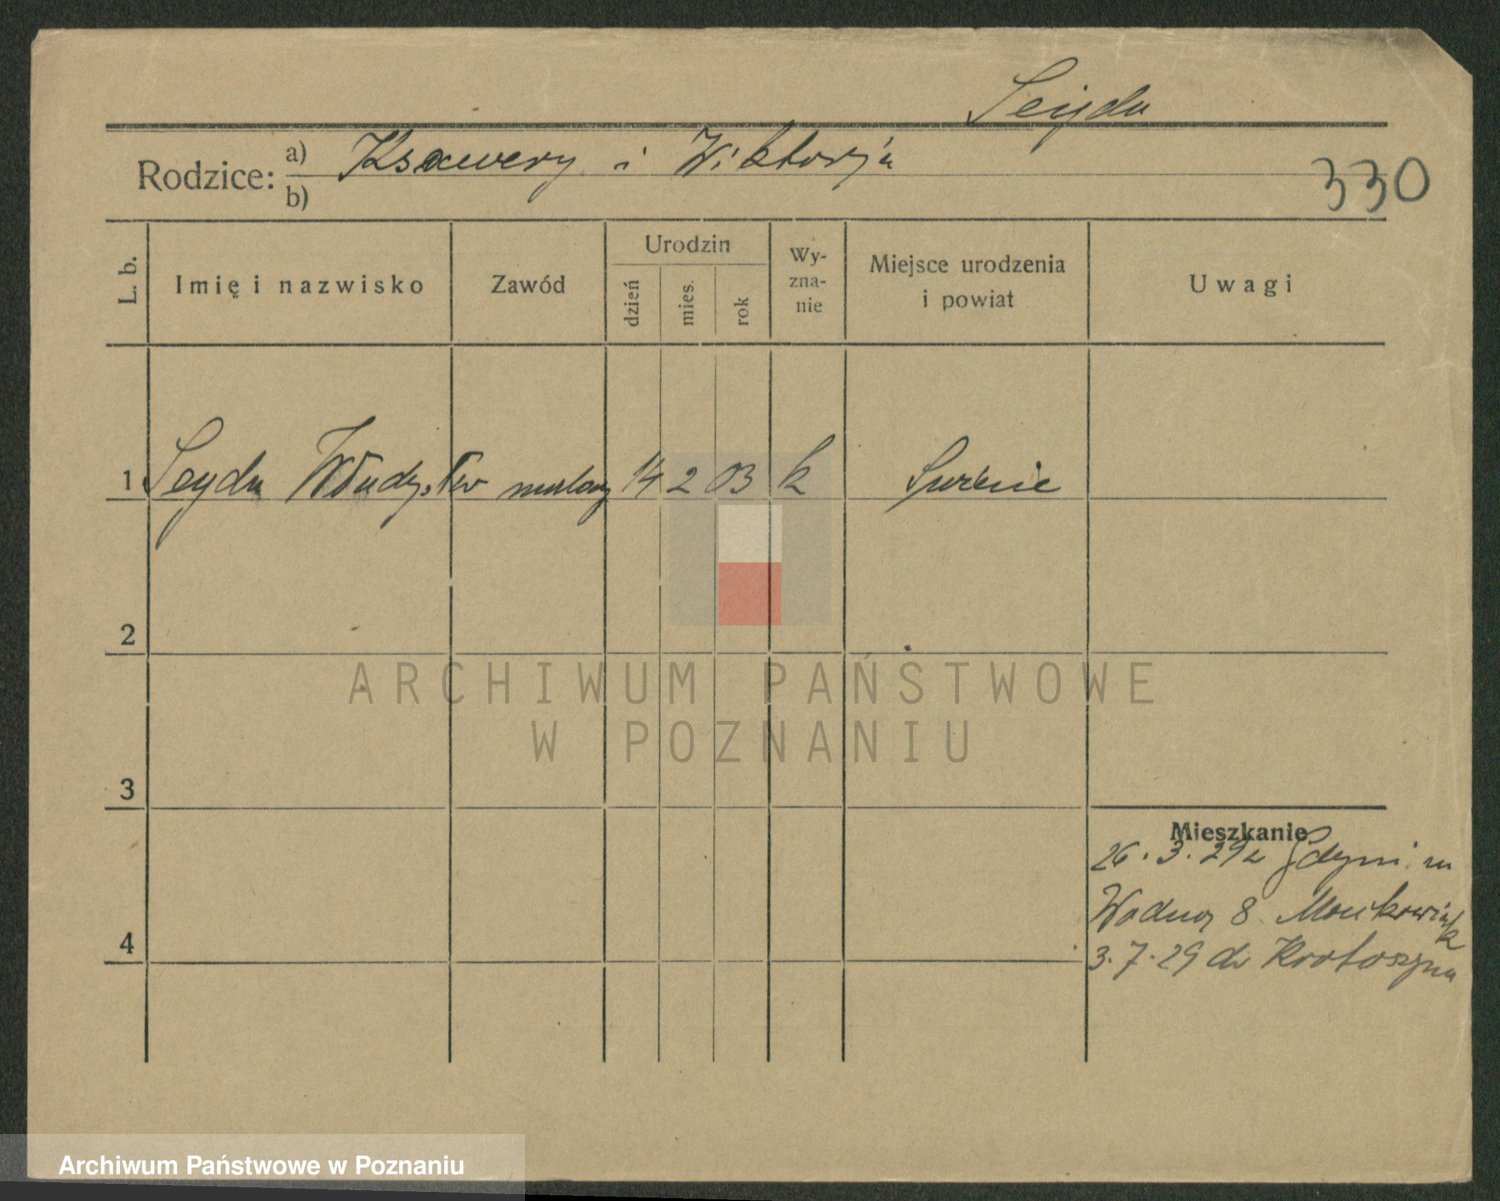 Seyda
Rodzice: a) Ksawery i Wiktorja
b)
330
L. b.
Imię i nazwisko
Zawód
Urodzin
dzień
mies.
rok
Wy-
zna-
nie
Miejsce urodzenia
i powiat
Uwagi
1 Seyda Władysław malarz 14 2 03 k
2
3
4
Mieszkanie
26. 3. 29 z Gdyni na
Wodną 8
3. 7. 29 do Krotoszyna
ARCHIWUM PAŃSTWOWE
W POZNANIU
Archiwum Państwowe w Poznaniu